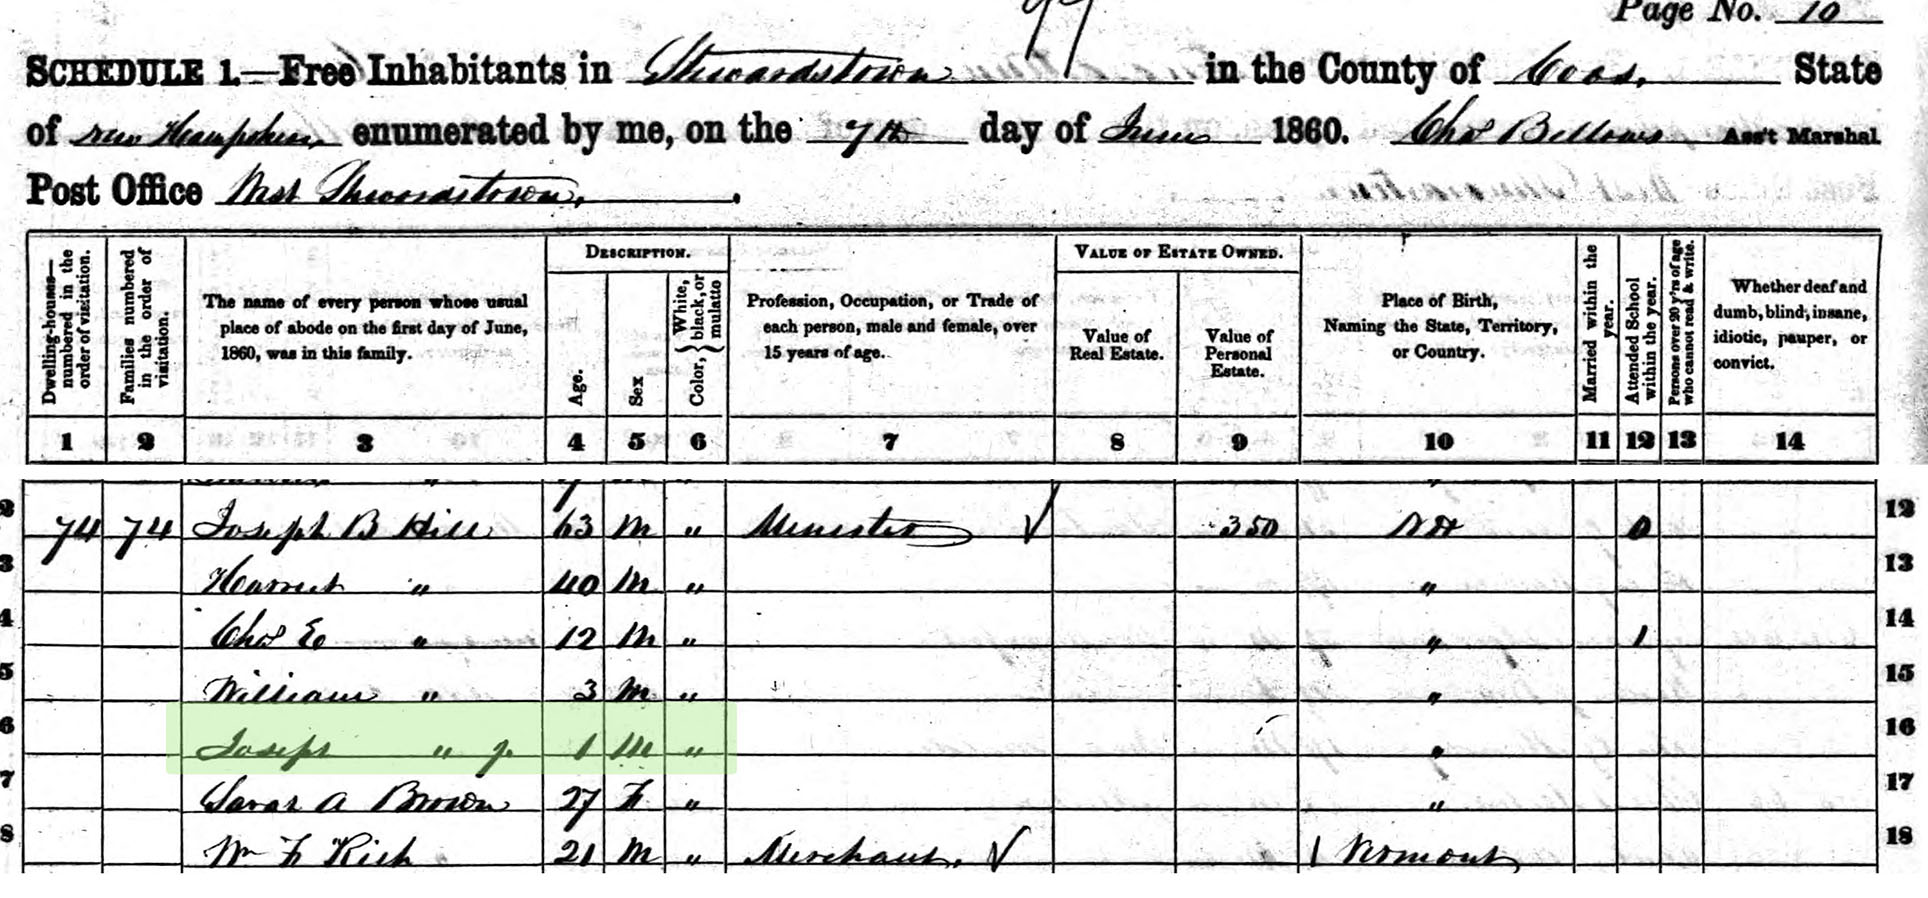 Page No. 10
SCHEDULE 1.—Free Inhabitants in Stewardstown in the County of Coos, State
of New Hampshire, enumerated by me, on the 7th day of June 1860. Chas Bellows Ass't Marshal
Post Office West Stewardstown.
Dwelling-houses—numbered in the order of visitation.
Families numbered in the order of visitation.
The name of every person whose usual
place of abode on the first day of June,
1860, was in this family.
DESCRIPTION.
Age.
Sex
Color, { White, black, or mulatto
Profession, Occupation, or Trade of
each person, male and female, over
15 years of age.
VALUE OF ESTATE OWNED.
Value of
Real Estate.
Value of
Personal
Estate.
Place of Birth,
Naming the State, Territory,
or Country.
Married within the year.
Attended School within the year.
Persons over 20 y'rs of age who cannot read & write.
Whether deaf and
dumb, blind, insane,
idiotic, pauper, or
convict.
1 2 3 4 5 6 7 8 9 10 11 12 13 14
2 74 74 Joseph B Hill 63 M " Minister ✓ 350 NH 0 12
3 Harriet " 40 M " " 13
4 Chas E " 12 M " " 1 14
5 William " 3 M " " 15
6 Joseph " Jr 1 M " " 16
7 Sarah A Brown 27 F " " 17
8 Wm F Rich 21 M " Merchant. ✓ 1 Vermont 18